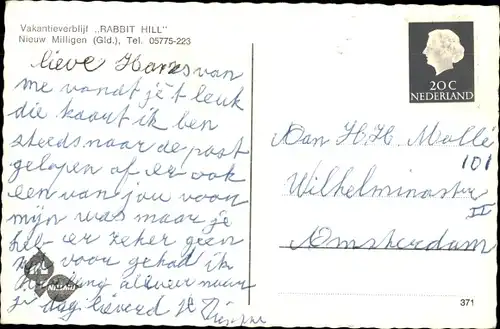 Vakantieverblijf „RABBIT HILL"
Nieuw Milligen (Gld.), Tel. 05775-223
lieve Hans van
me vandt je 't leuk
die kaart ik ben
steeds naar de post
gelopen of er ook
een van jou voor
mijn was maar je
heb er zeker geen
voor gehad ik
alever maar
dag lieverd
20 C
NEDERLAND
Aan H.H. Molle
101
Wilhelminastr
II
Amsterdam
371